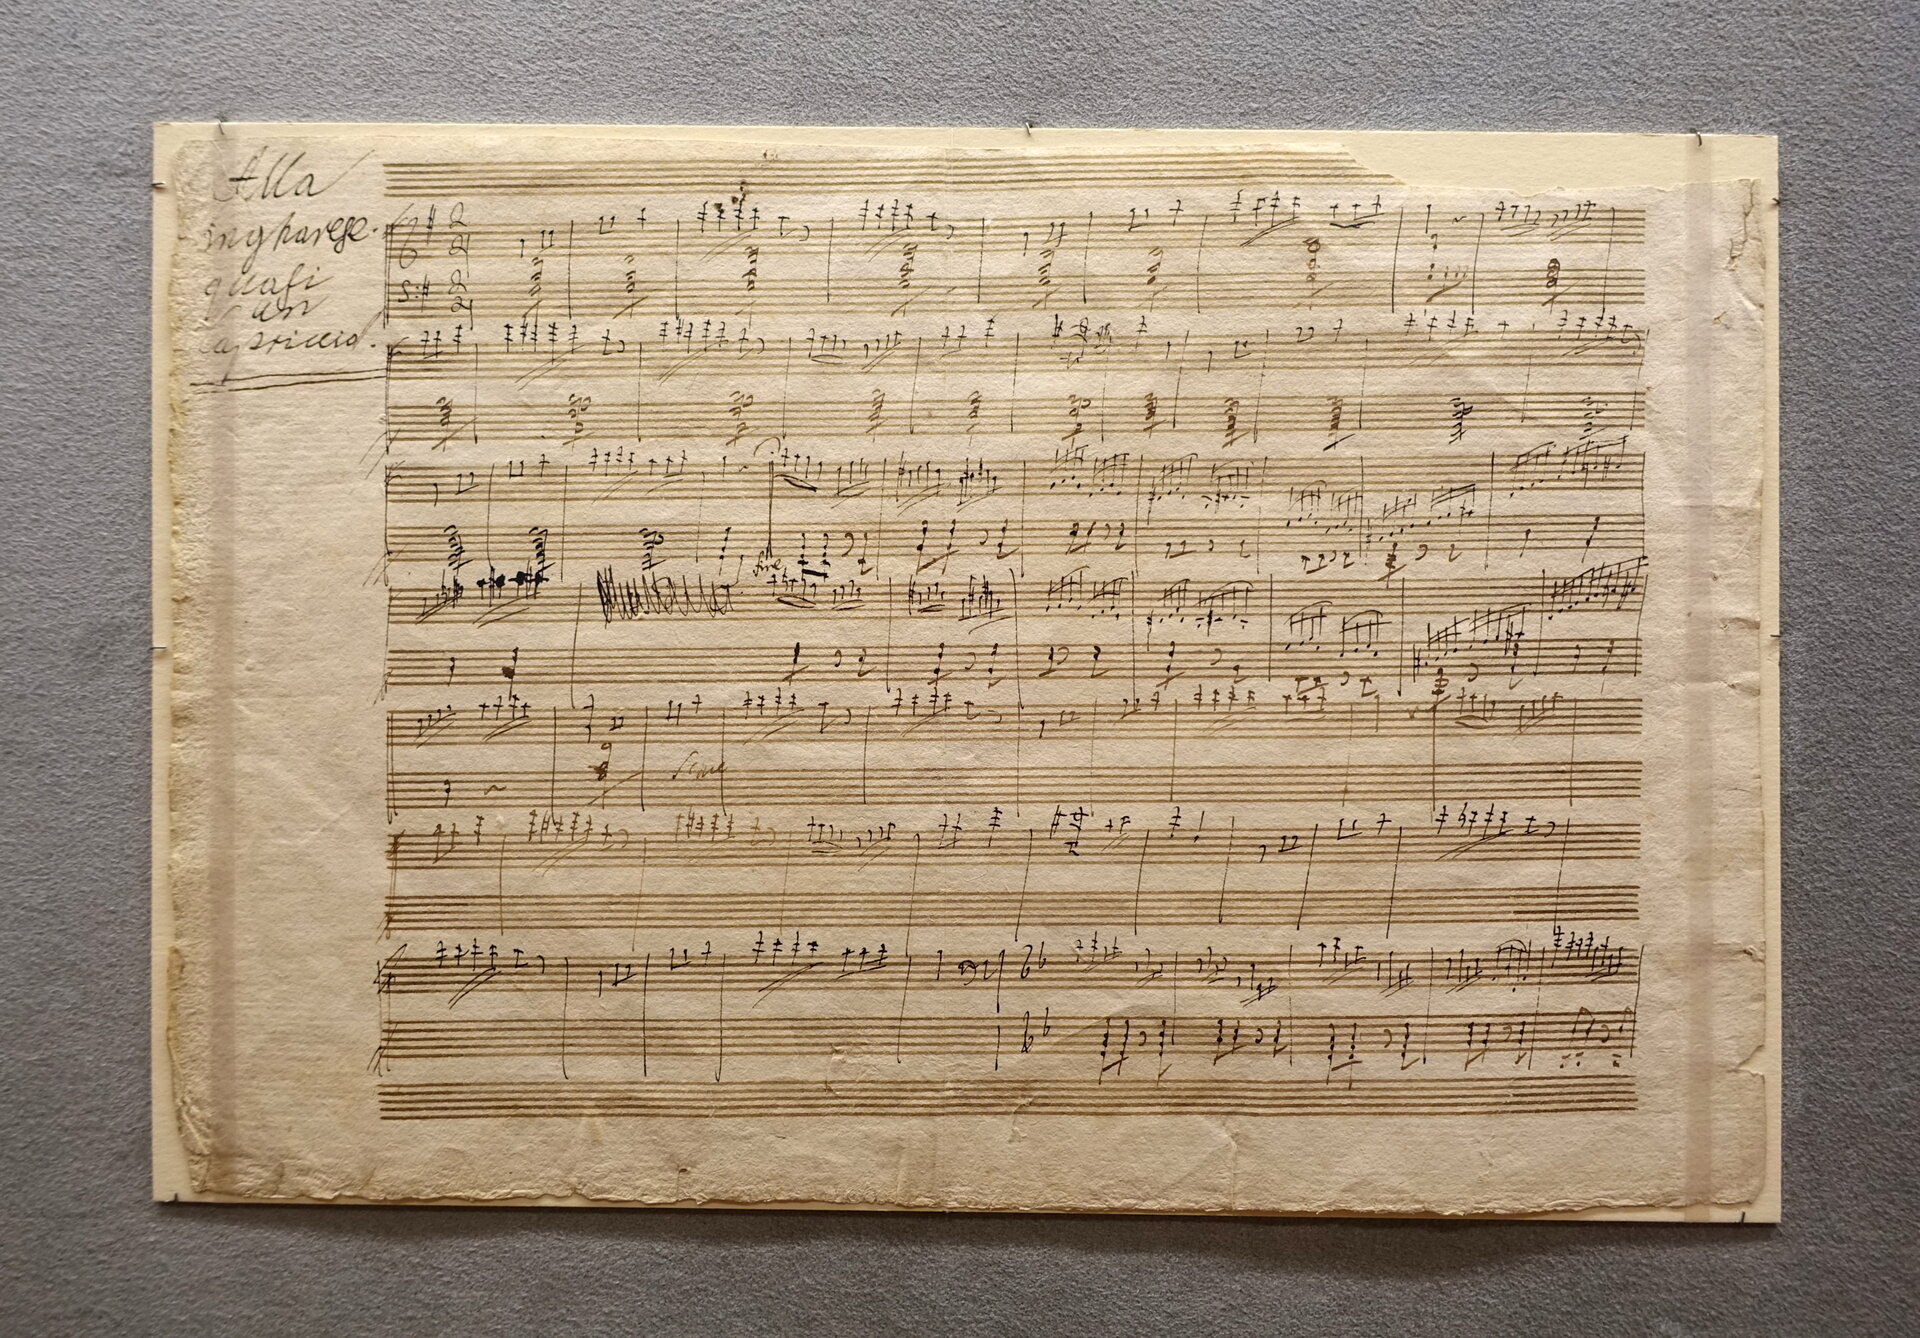 Alla
ingharese.
quasi
un
capriccio.
fine